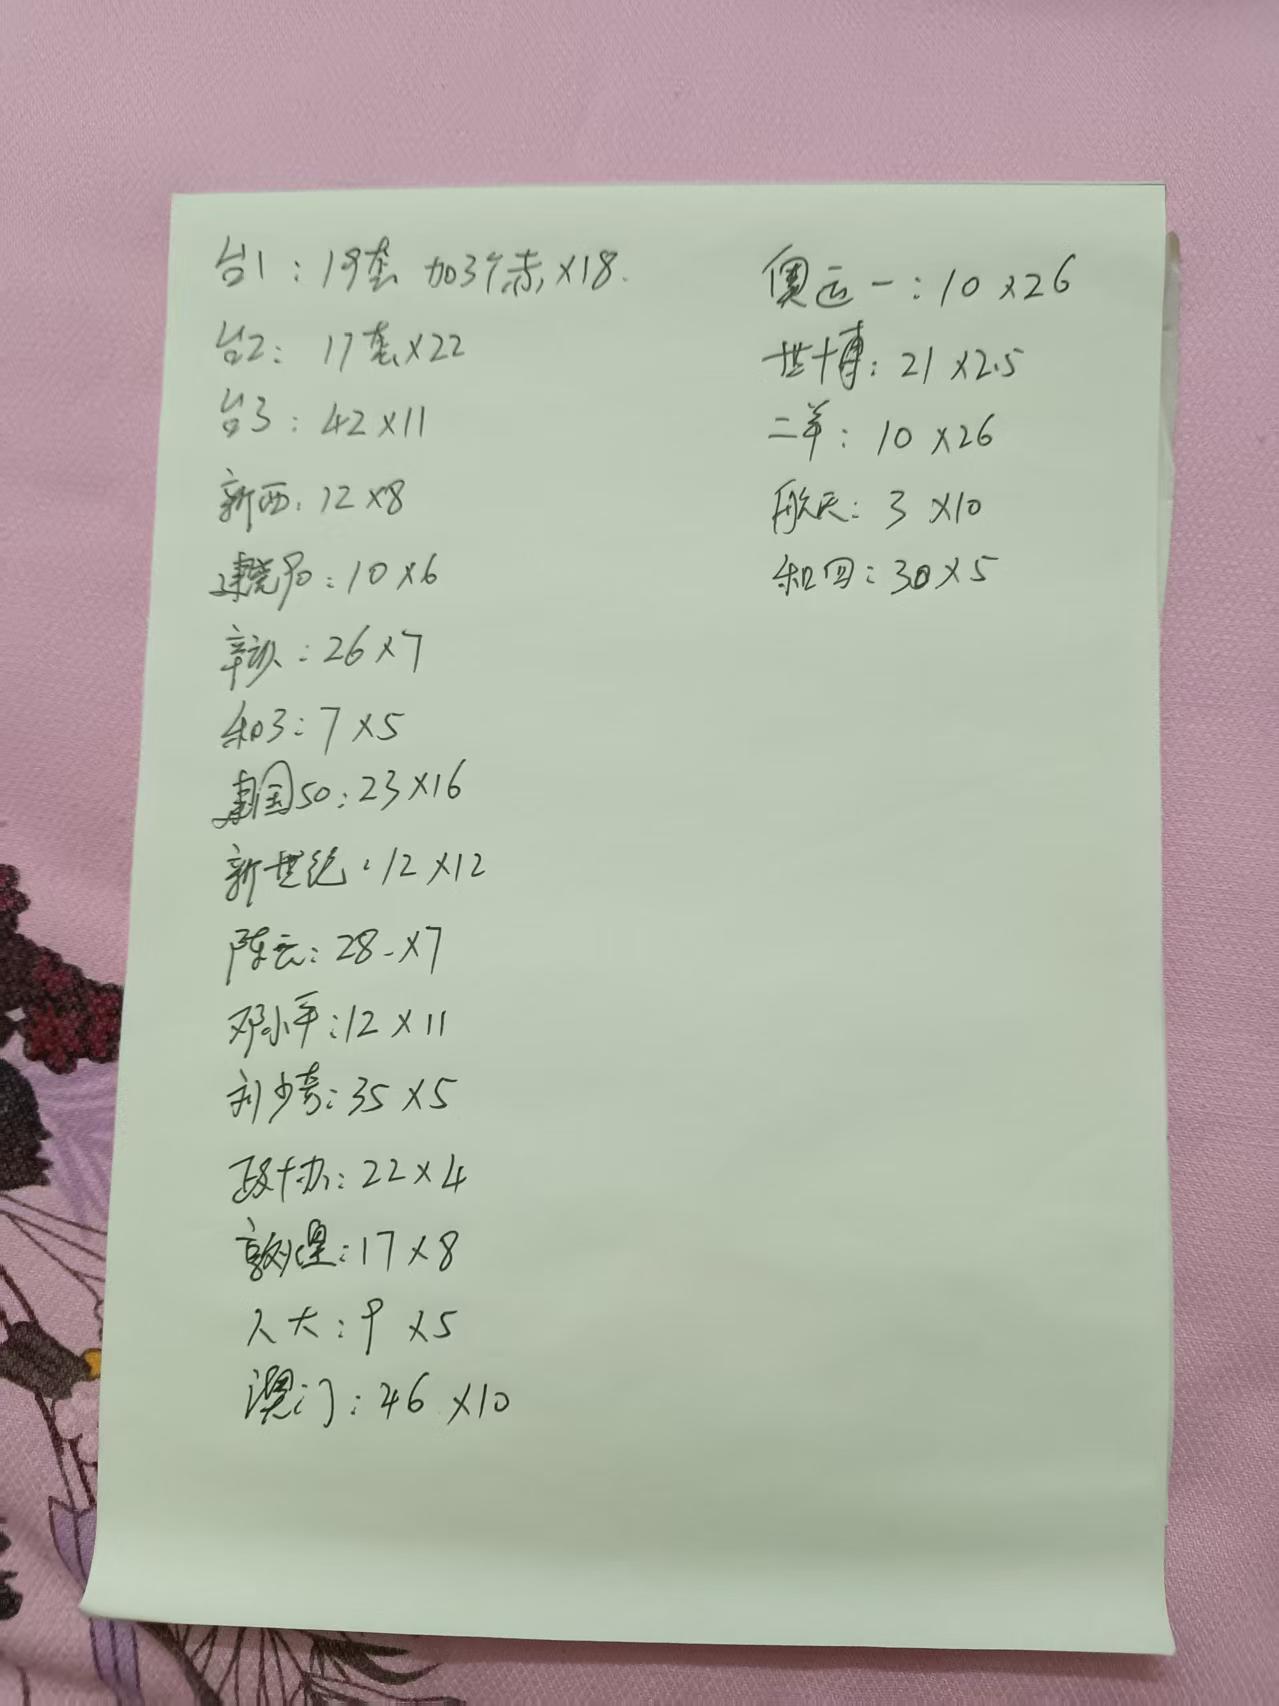 台1：19套 加3个赤×18.
台2：17套×22
台3：42×11
新西：12×8
建党90：10×6
辛亥：26×7
和3：7×5
建国50：23×16
新世纪：12×12
陈云：28-×7
邓小平：12×11
刘少奇：35×5
政协：22×4
敦煌：17×8
人大：9×5
澳门：46×10
奥运一：10×26
世博：21×2.5
二羊：10×26
航天：3×10
和四：30×5